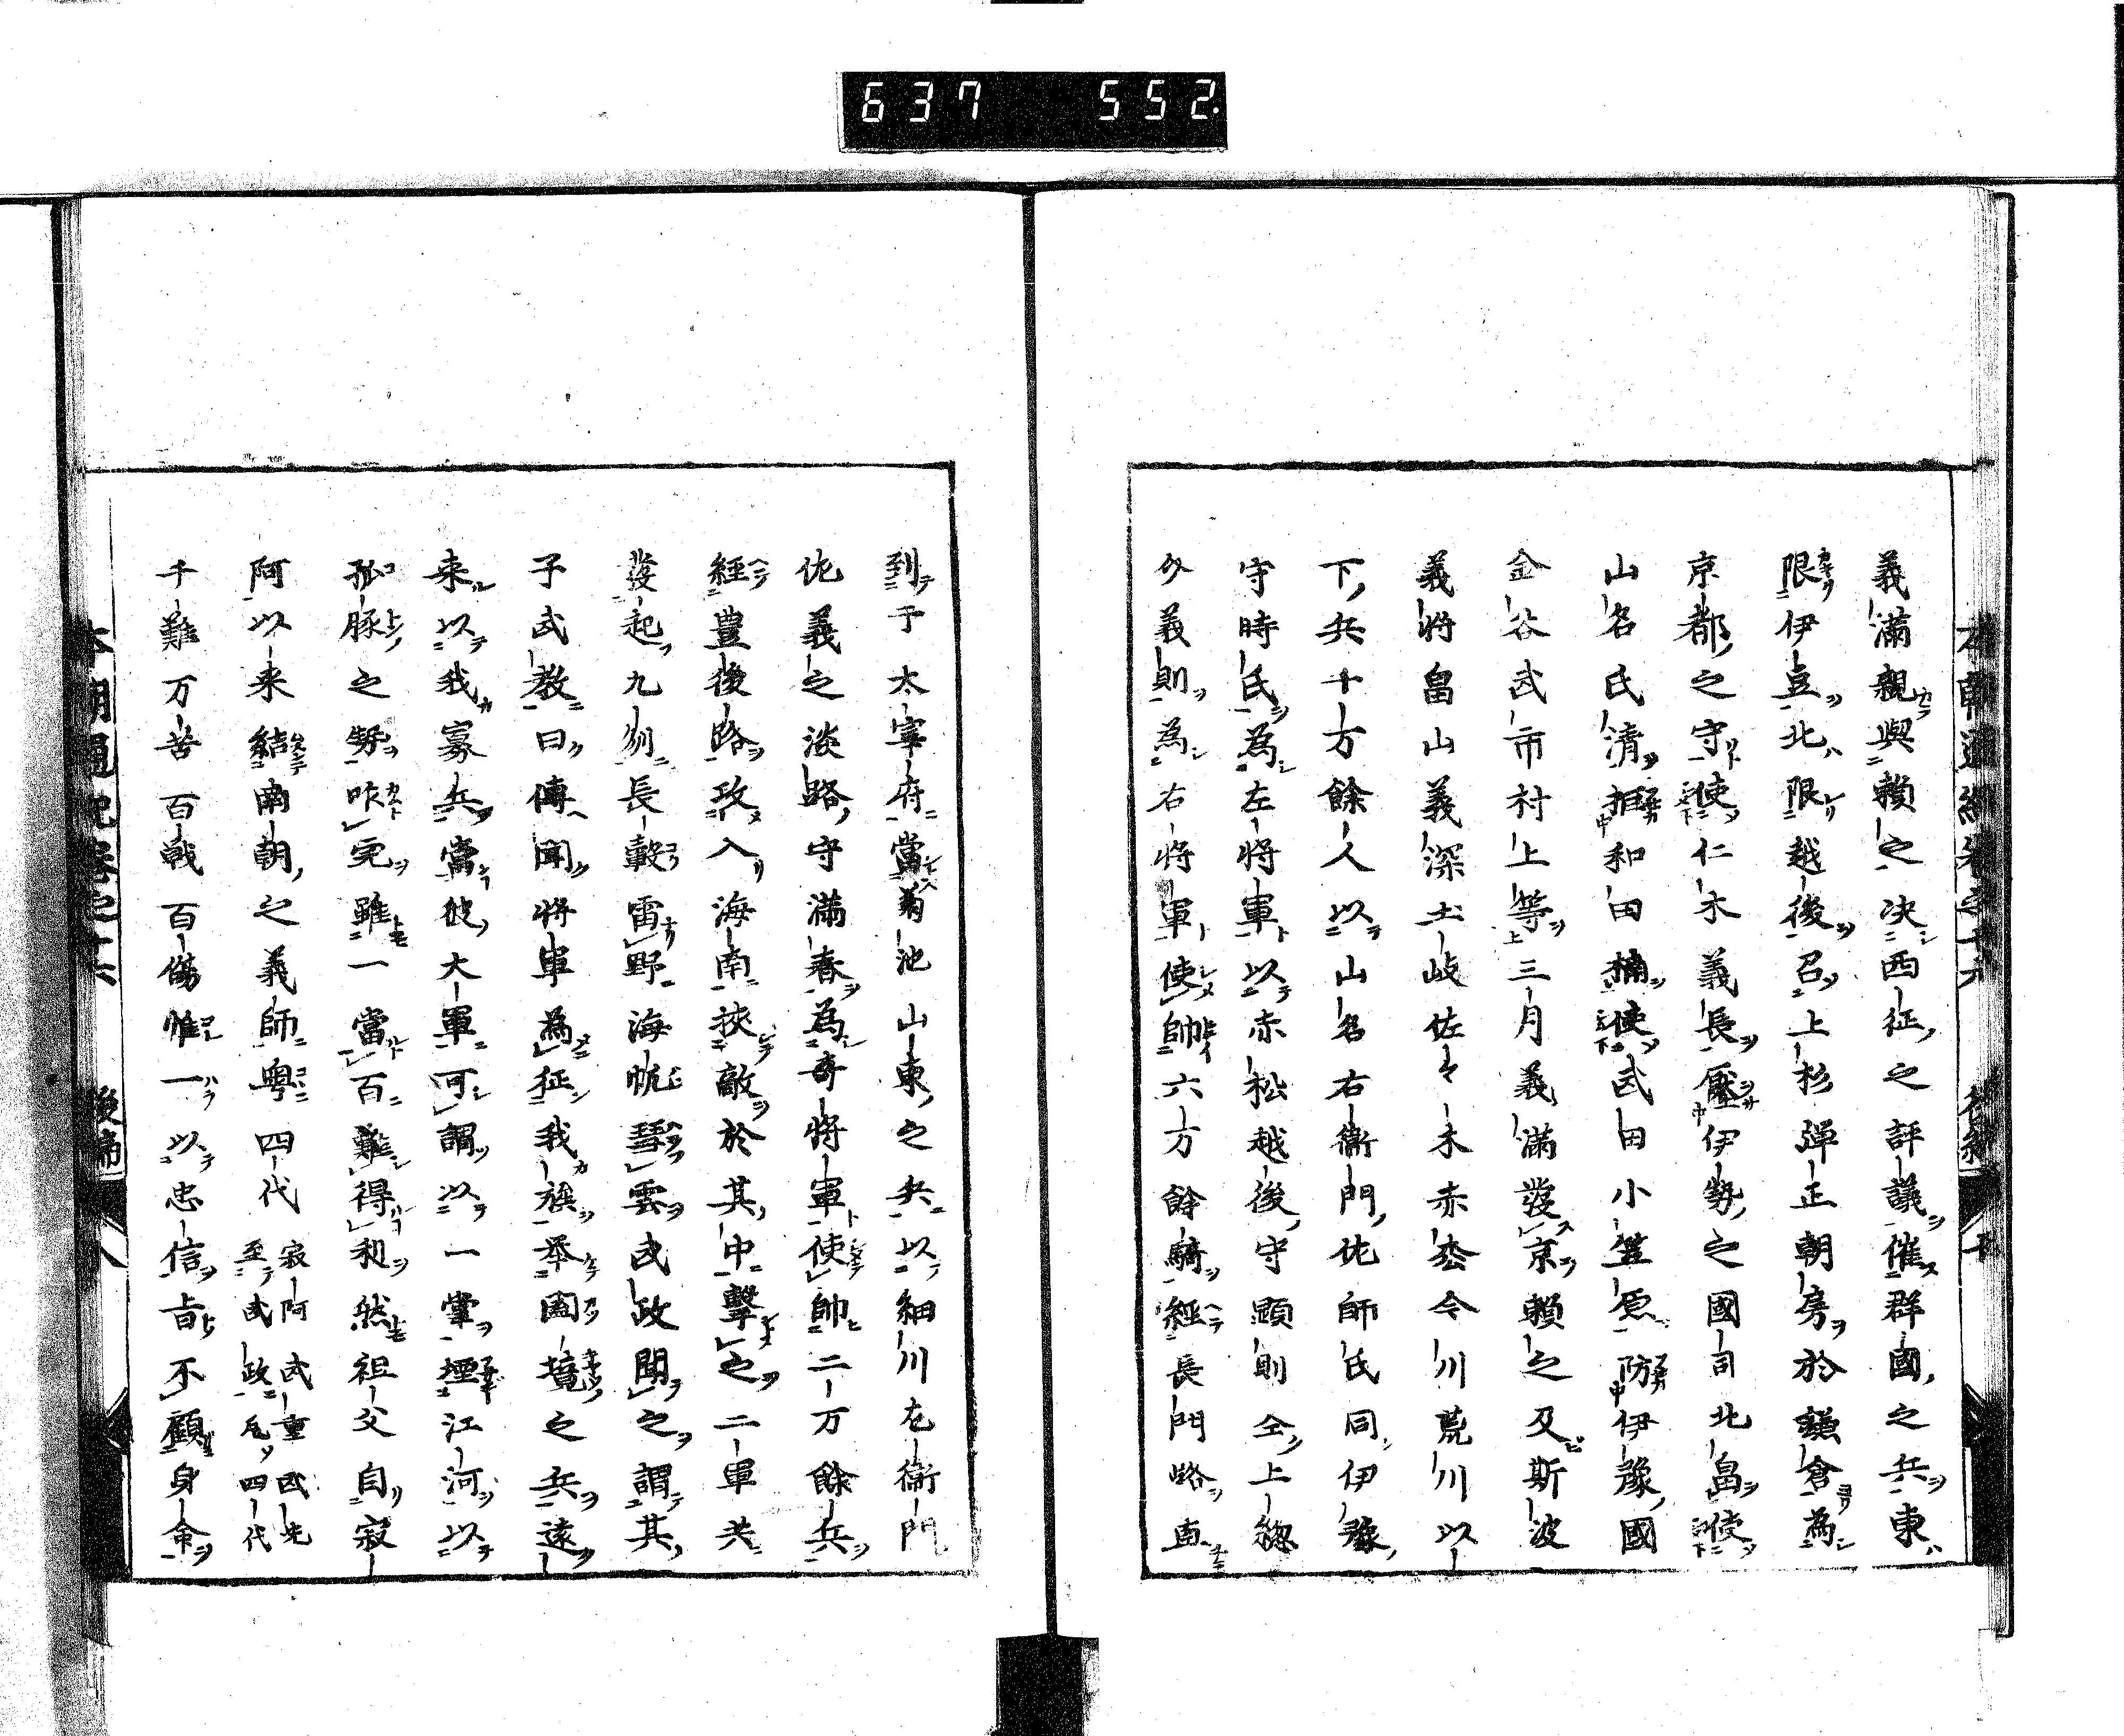 637 552.
義滿親與賴之决西征之評議催群國之兵東
限伊豆北限越後召上杉弾正朝房於鎌倉為
京都之守使仁木義長壓伊勢之國司北畠使
山名氏清拒和田楠使武田小笠原防伊豫國
金谷武市村上等三月義滿發京賴之及斯波
義將畠山義深土岐佐々木赤松今川荒川以
下兵十万餘人以山名右衞門佐師氏同伊豫
守時氏為左將軍以赤松越後守顯則仝上総
义義則為右將軍使帥六万餘騎經長門路直
到于太宰府當菊池山東之兵以細川左衞門
佐義之淡路守滿春為奇將軍使帥二万餘兵
經豊後路攻入海南挾敵於其中擊之二軍共
發起九刕長轂雷野海帆彗雲武政聞之謂其
子武教曰傳聞將軍為征我族举闔境之兵遠
来以我寡兵當彼大軍可謂以一掌堙江河以
孤豚之勢咋虎雖一當百難得利然祖父自寂
阿以来結南朝之義師粤四代寂阿武重武光至武政凡四代
千難万苦百戦百傷惟一以忠信旨不顧身命
本朝通紀卷之十六 後編